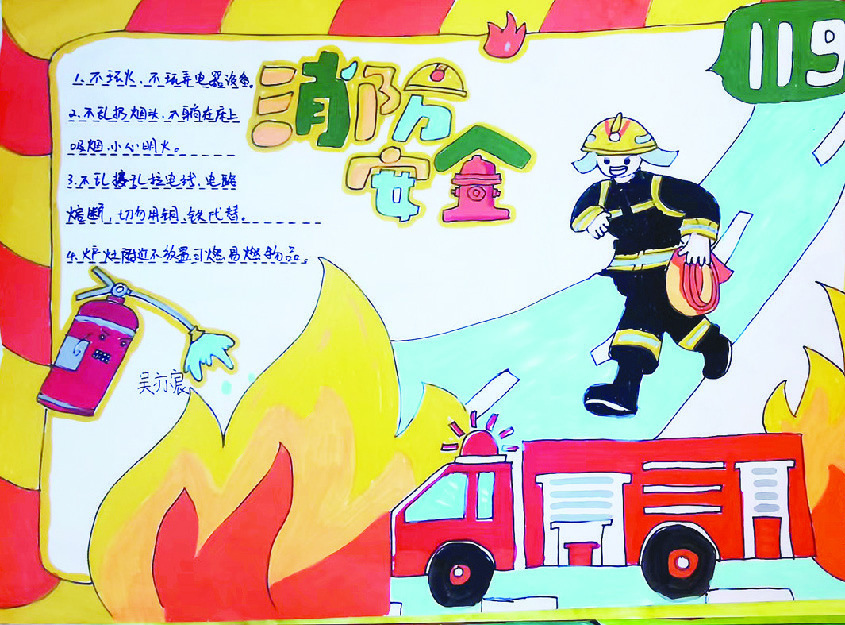 消防
安全
119
1.不玩火、不玩弄电器设备。
2.不乱扔烟头、不躺在床上
吸烟,小心明火。
3.不乱接乱拉电线,电路
熔断,切勿用铜、铁代替。
4.炉灶附近不放置可燃易燃物品。
吴亦宸